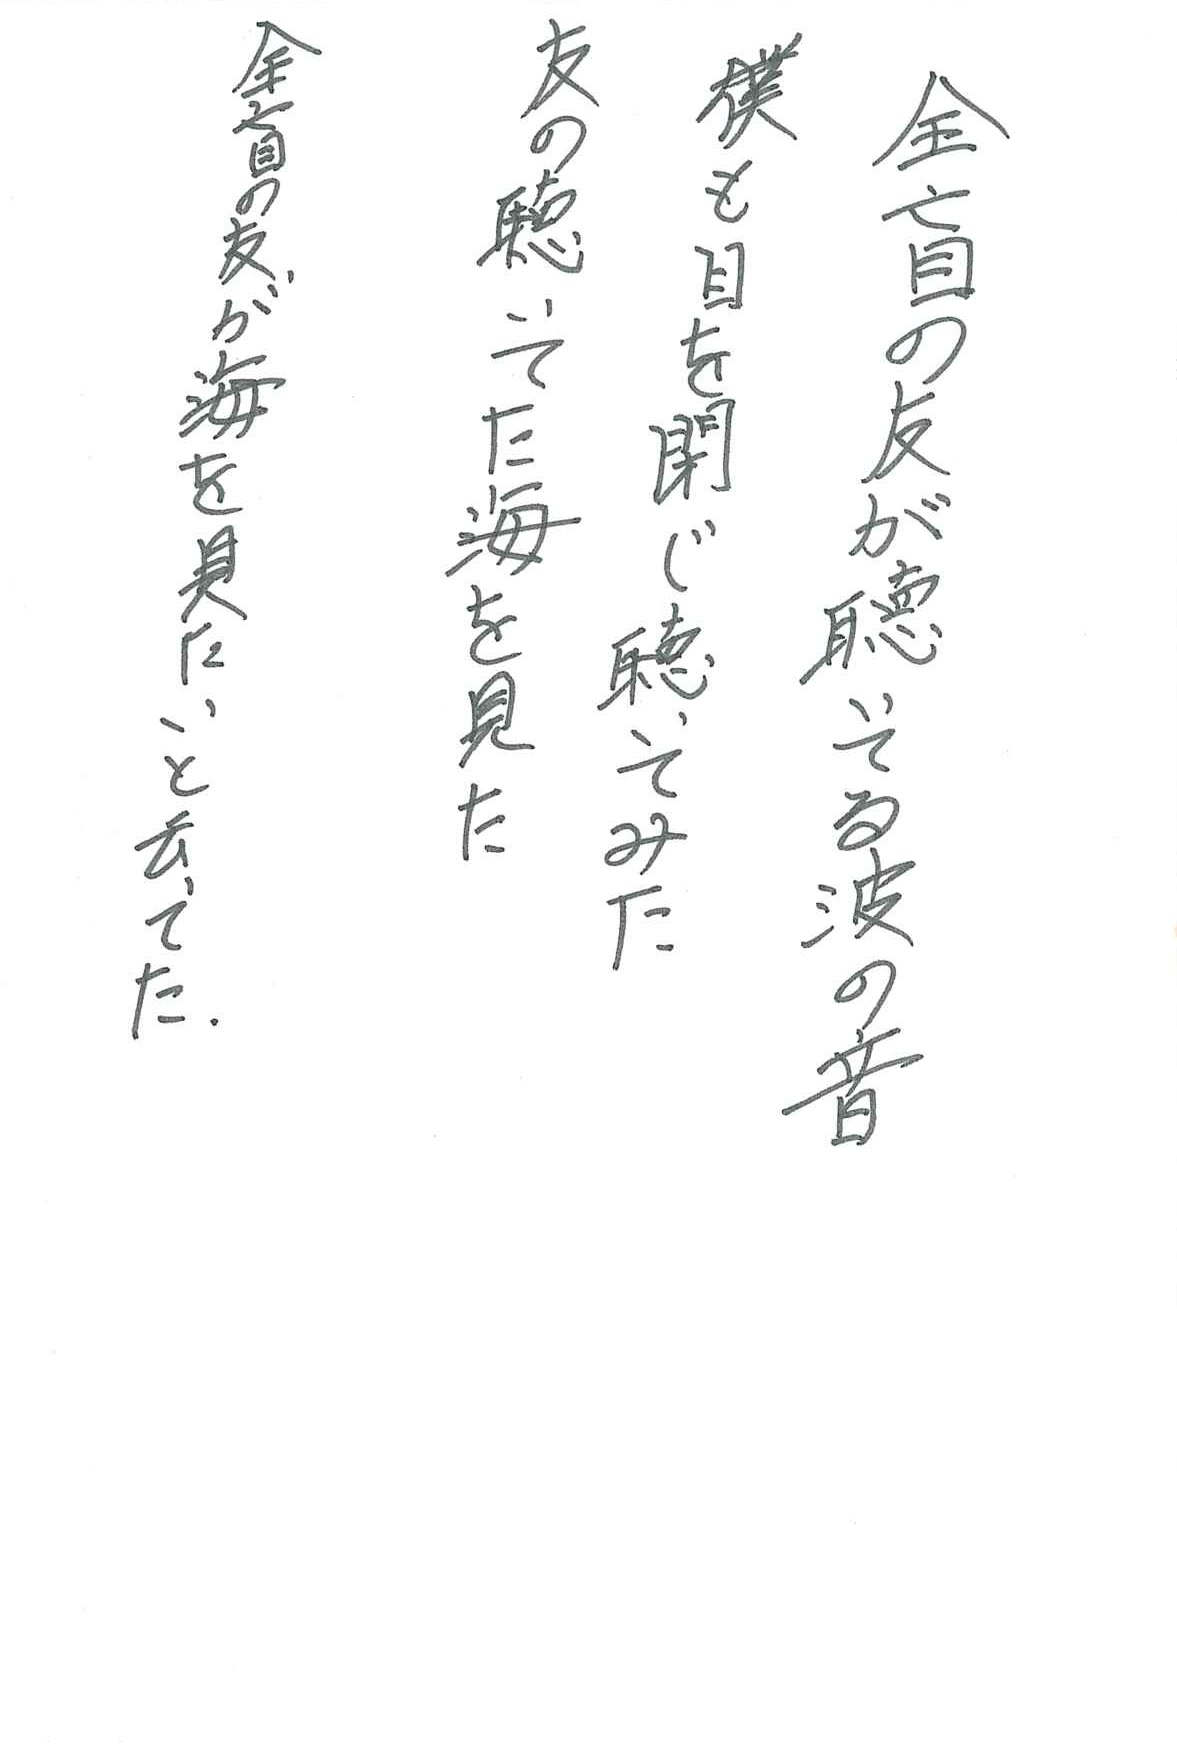 全盲の友が聴いてる波の音
僕も目を閉じ聴いてみた
友の聴いてた海を見た
全盲の友が海を見たいと云ってた.